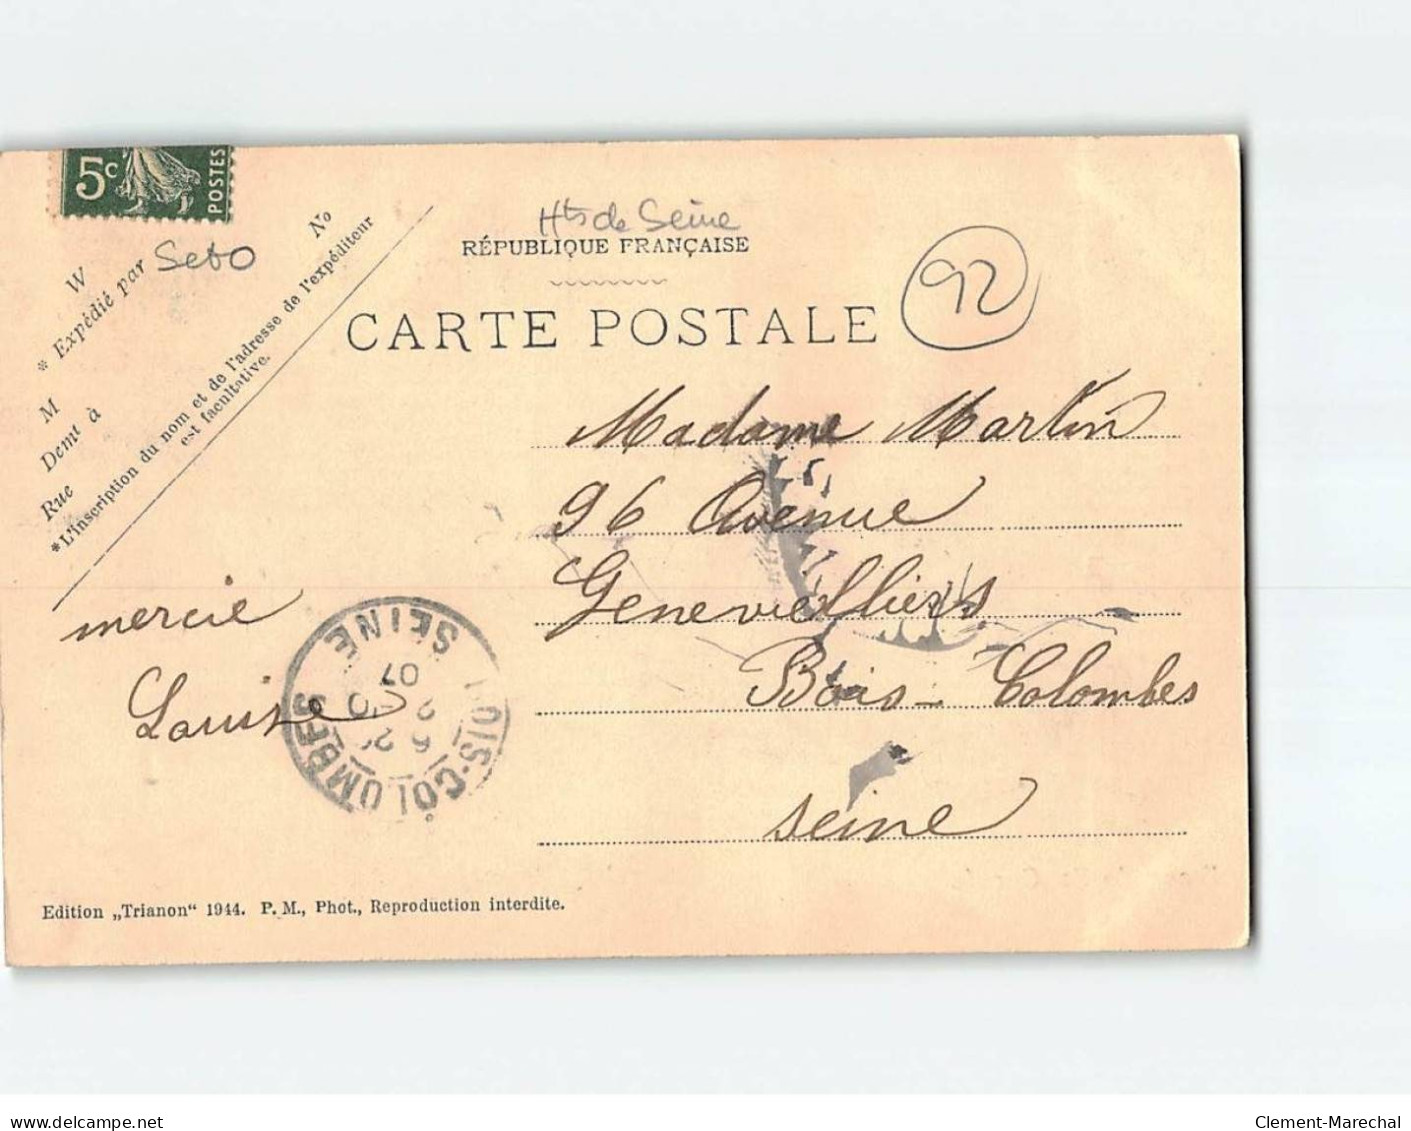 5c
POSTES
Hts de Seine
RÉPUBLIQUE FRANÇAISE
92
CARTE POSTALE
W No
* Expédié par Sebo
M
Demt à
Rue
*L'inscription du nom et de l'adresse de l'expéditeur
est facultative.
Madame Martin
96 Avenue
Genevielliers
Bois-Colombes
seine
mercie
Louise
BOIS-COLOMBES
SEINE
07
Edition „Trianon“ 1944. P. M., Phot., Reproduction interdite.
delcampe.net
Clement-Marechal